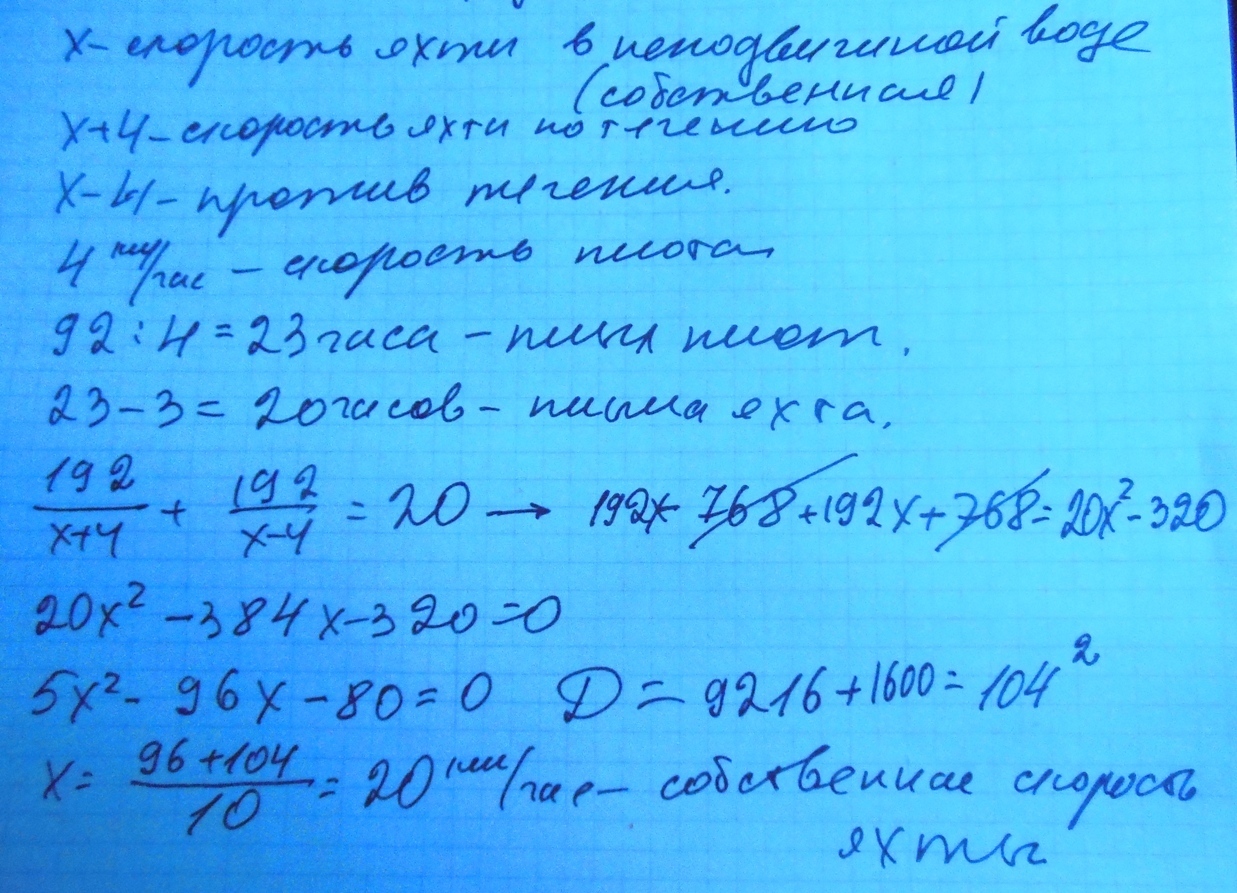 x - скорость яхты в неподвижной воде
(собственная)
x+4 - скорость яхты по течению
x-4 - против течения.
4 км/час - скорость плота
92:4=23 часа - плыл плот.
23-3=20 часов - плыла яхта.
192/(x+4) + 192/(x-4) = 20 → 192x-768+192x+768=20x²-320
20x²-384x-320=0
5x²-96x-80=0 D=9216+1600=104²
x=(96+104)/10=20 км/час - собственная скорость
яхты